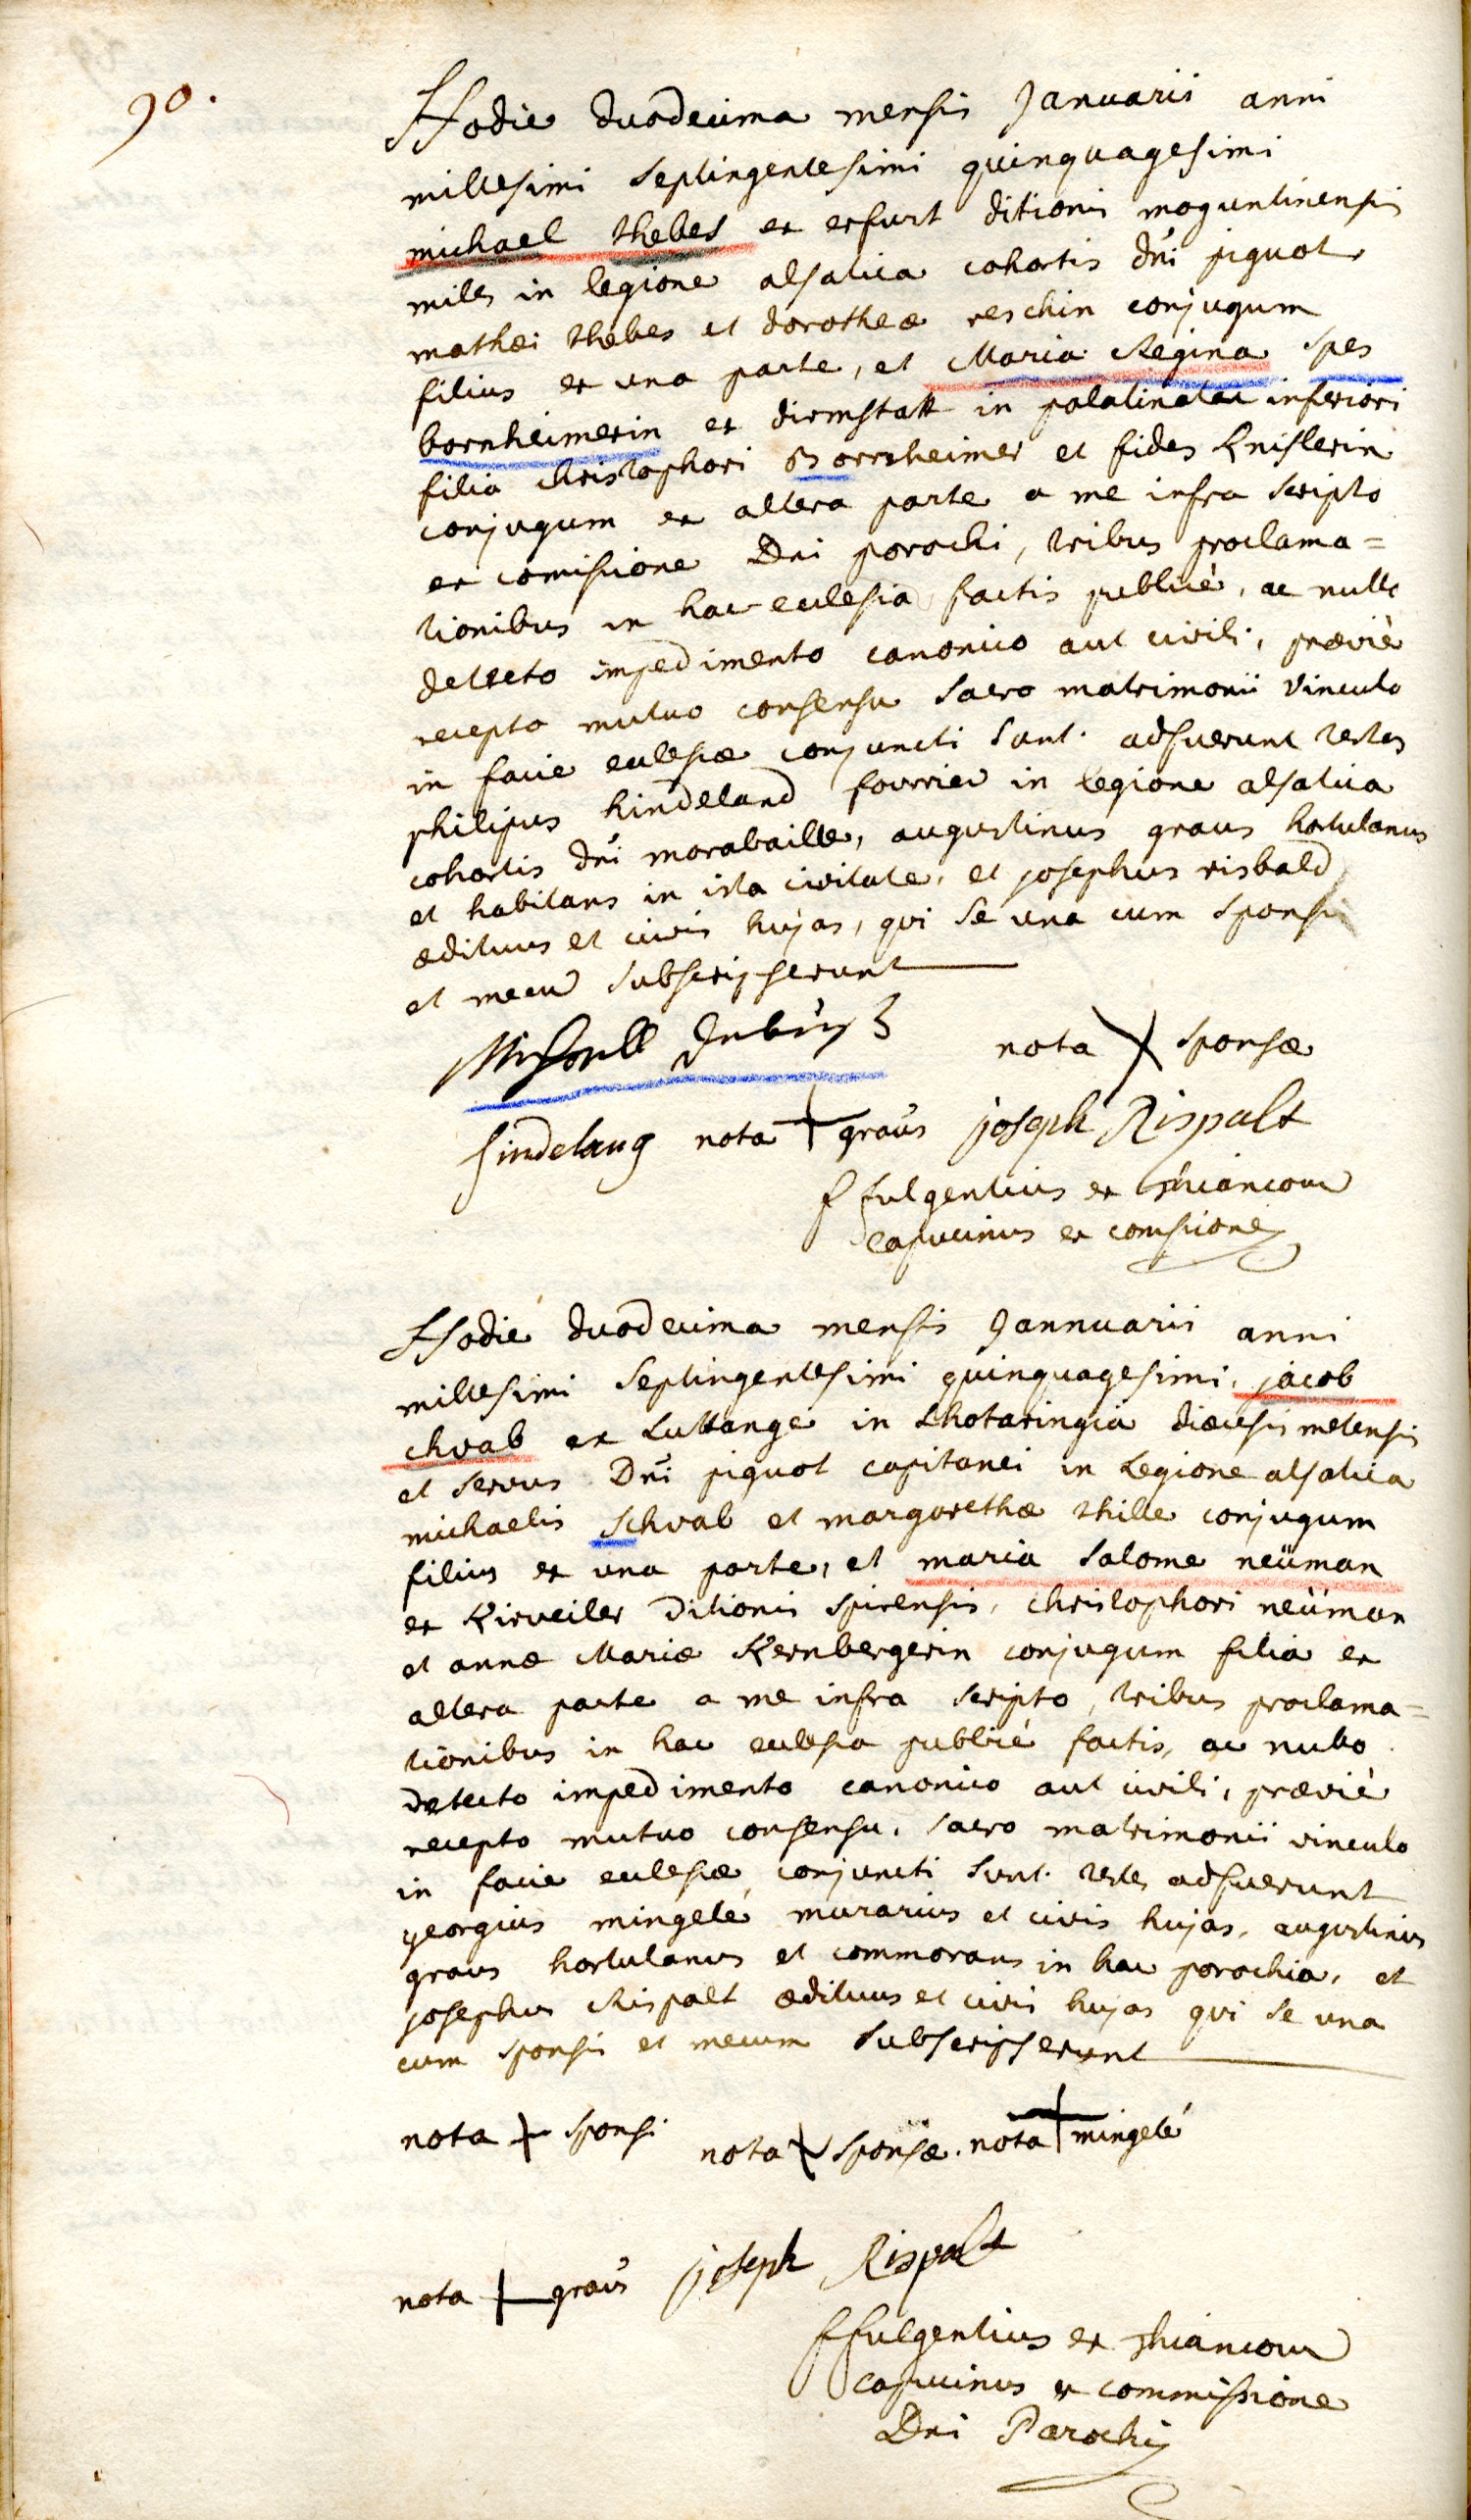 90.
Hodie duodecima mensis Januarii anni
millesimi septingentesimi quinquagesimi
michael thebes ex erfurt ditionis moguntinensis
miles in legione alsatica cohortis dñi piquot
mathæi thebes et dorotheæ reschin conjugum
filius ex una parte, et Maria Regina spes
bornheimerin ex dirmstatt in palatinatu inferiori
filia christophori Bornheimer et fides Knislerin
conjugum ex altera parte a me infra scripto
ex comissione Dni parochi, tribus proclama=
tionibus in hac ecclesia factis publicè, ac nullo
detecto impedimento canonico aut civili, prævie
recepto mutuo consensu sacro matrimonii vinculo
in facie ecclesiæ conjuncti sunt. adfuerunt testes
philipus hindeland fourrier in legione alsatica
cohortis dñi marabaille, augustinus graus hortulanus
et habitans in ista civitate, et josephus risbald
ædituus et civis hujas, qui se una cum sponsis
et mecu subscripserunt
nota sponsæ
hindelang nota + graus joseph Rispalt
f fulgentius ex
capucinus ex comissione
Hodie duodecima mensis Jannuarii anni
millesimi septingentesimi quinquagesimi, jacob
chvab ex Luttange in Lhotaringia diœcesis metensis
et servus Dñi piquot capitanei in Legione alsatica
michaelis schvab et margarethæ thille conjugum
filius ex una parte, et maria salome neüman
ex Kirveiler Ditionis spirensis, christophori neüman
et annæ Mariæ Kernbergerin conjugum filia ex
altera parte a me infra scripto, tribus proclama=
tionibus in hac ecclesia publicè factis, ac nullo
detecto impedimento canonico aut civili, prævie
recepto mutuo consensu, sacro matrimonii vinculo
in facie ecclesiæ conjuncti sunt. testes adfuerunt
georgius mingelé murarius et civis hujas, augustinus
graus hortulanus et commorans in hac parochia, et
josephus Rispalt ædituus et civis hujas qui se una
cum sponsis et mecum subscripserunt
nota + sponsi nota + sponsæ. nota + mingelé
nota + graus joseph Rispalt
f fulgentius ex
capucinus ex commissione
Dni Parochi